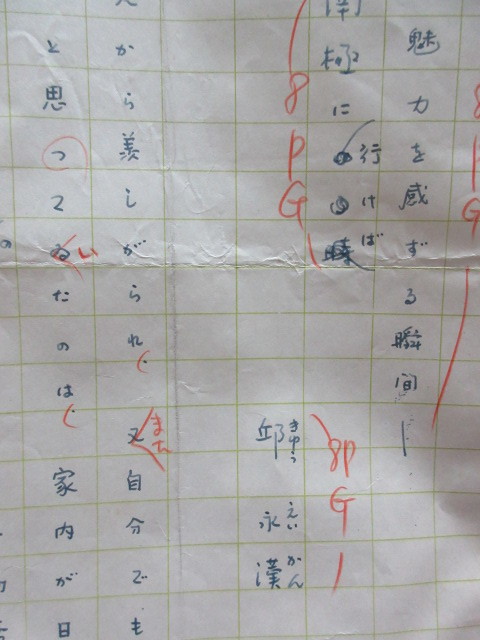 8PG
魅力を感ずる瞬間―
南極に行けば
8PG
8PG
きゅうえいかん
邱永漢
から羨しがられ、又自分でも
また
と思つてゐたのは、家内が日
い
の